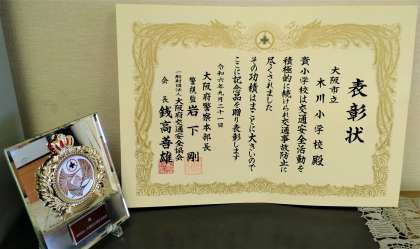 表彰状
大阪市立
木川小学校殿
貴小学校は交通安全活動を
積極的に続けられ交通事故防止に
尽くされました
その功績はまことに大きいので
ここに記念品を贈り表彰します
令和六年九月二十一日
大阪府警察本部長
警視監 岩下剛
一般財団法人 大阪府交通安全協会
会長 銭高善雄